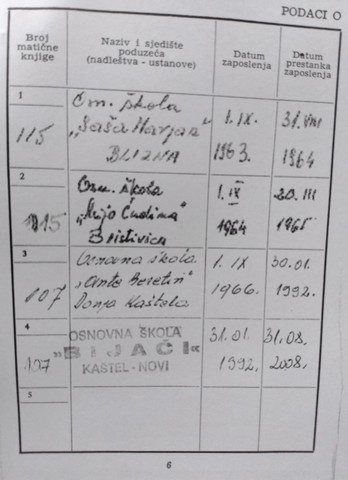 PODACI O
Broj matične knjige
Naziv i sjedište poduzeća (nadleštva - ustanove)
Datum zaposlenja
Datum prestanka zaposlenja
1
Osn. škola
115
„Saša Marjan"
1. IX.
31. VIII
BLIZNA
1963.
1964
2
Osn. škola
1. IX
20. III
115
„Mijo Čudina"
1964
1965
Bristivica
3
Osnovna škola
1. IX
30.01.
107
„Ante Beretin"
1966.
1992.
Donja Kaštela
4
OSNOVNA ŠKOLA
31.01.
31.08.
107
„BIJAĆI"
1992.
2008.
KAŠTEL-NOVI
5
6